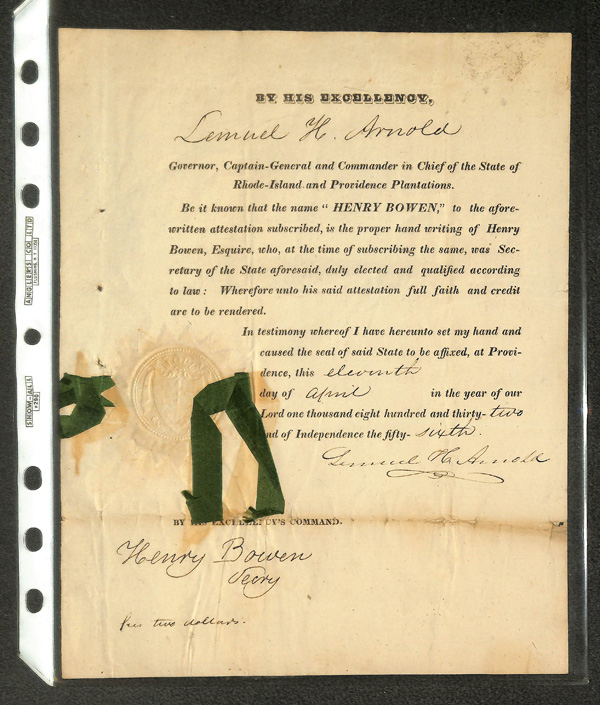 BY HIS EXCELLENCY,
Lemuel H. Arnold
Governor, Captain-General and Commander in Chief of the State of
Rhode-Island and Providence Plantations.
Be it known that the name "HENRY BOWEN," to the afore-
written attestation subscribed, is the proper hand writing of Henry
Bowen, Esquire, who, at the time of subscribing the same, was Sec-
retary of the State aforesaid, duly elected and qualified according
to law: Wherefore unto his said attestation full faith and credit
are to be rendered.
In testimony whereof I have hereunto set my hand and
caused the seal of said State to be affixed, at Provi-
dence, this eleventh
day of April in the year of our
Lord one thousand eight hundred and thirty-two
and of Independence the fifty-sixth.
Lemuel H Arnold
BY HIS EXCELLENCY'S COMMAND.
Henry Bowen
Secry
fees two dollars.